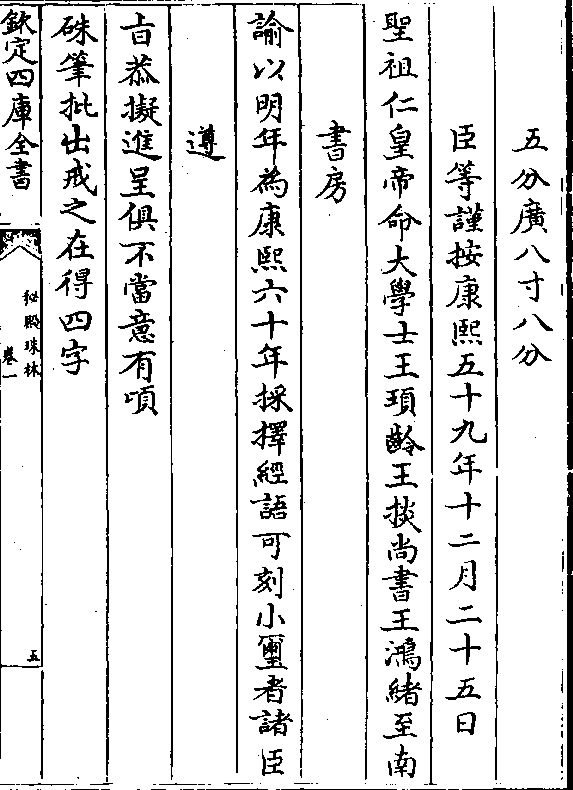 五分廣八寸八分
臣等謹按康熙五十九年十二月二十五日
聖祖仁皇帝命大學士王頊齡王掞尚書王鴻緒至南
書房
諭以明年為康熙六十年採擇經語可刻小璽者諸臣
遵
旨恭擬進呈俱不當意有頃
硃筆批出戒之在得四字
欽定四庫全書
秘殿珠林
卷一
五